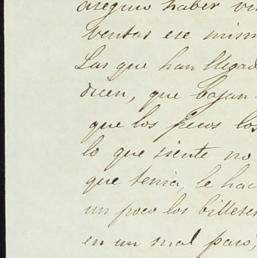 aseguro haber ve
ventas ese mism
Las que han llegad
dicen, que bajan
que los pesos los
lo que siente no
que tenia, le hac
un poco los billetes
en un mal paso,